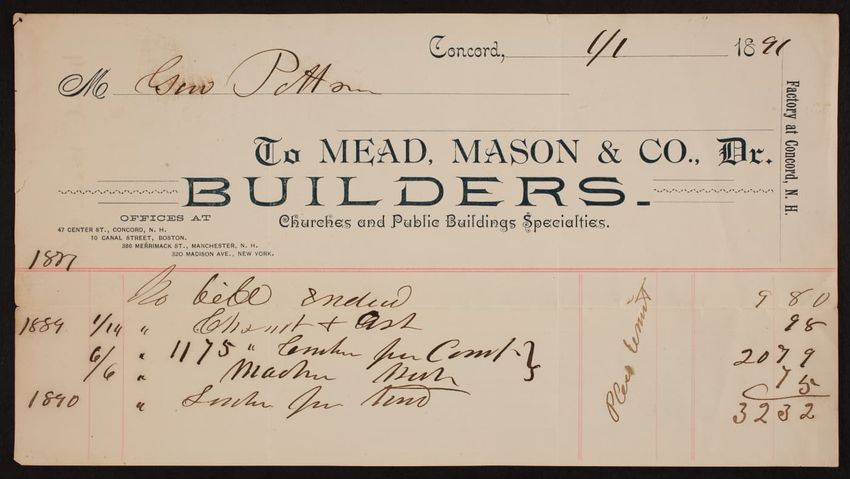 Concord, 1/1 1891
M Geo
Factory at Concord, N. H.
To MEAD, MASON & CO., Dr.
BUILDERS.
Churches and Public Buildings Specialties.
OFFICES AT
47 CENTER ST., CONCORD, N. H.
10 CANAL STREET, BOSTON.
386 MERRIMACK ST., MANCHESTER, N. H.
320 MADISON AVE., NEW YORK.
To bill 9 80
1889 1/14 " Chesnut + Ash 98
6/ " 1175 " per 20 79
/6 " 75
1890 " per
32 32